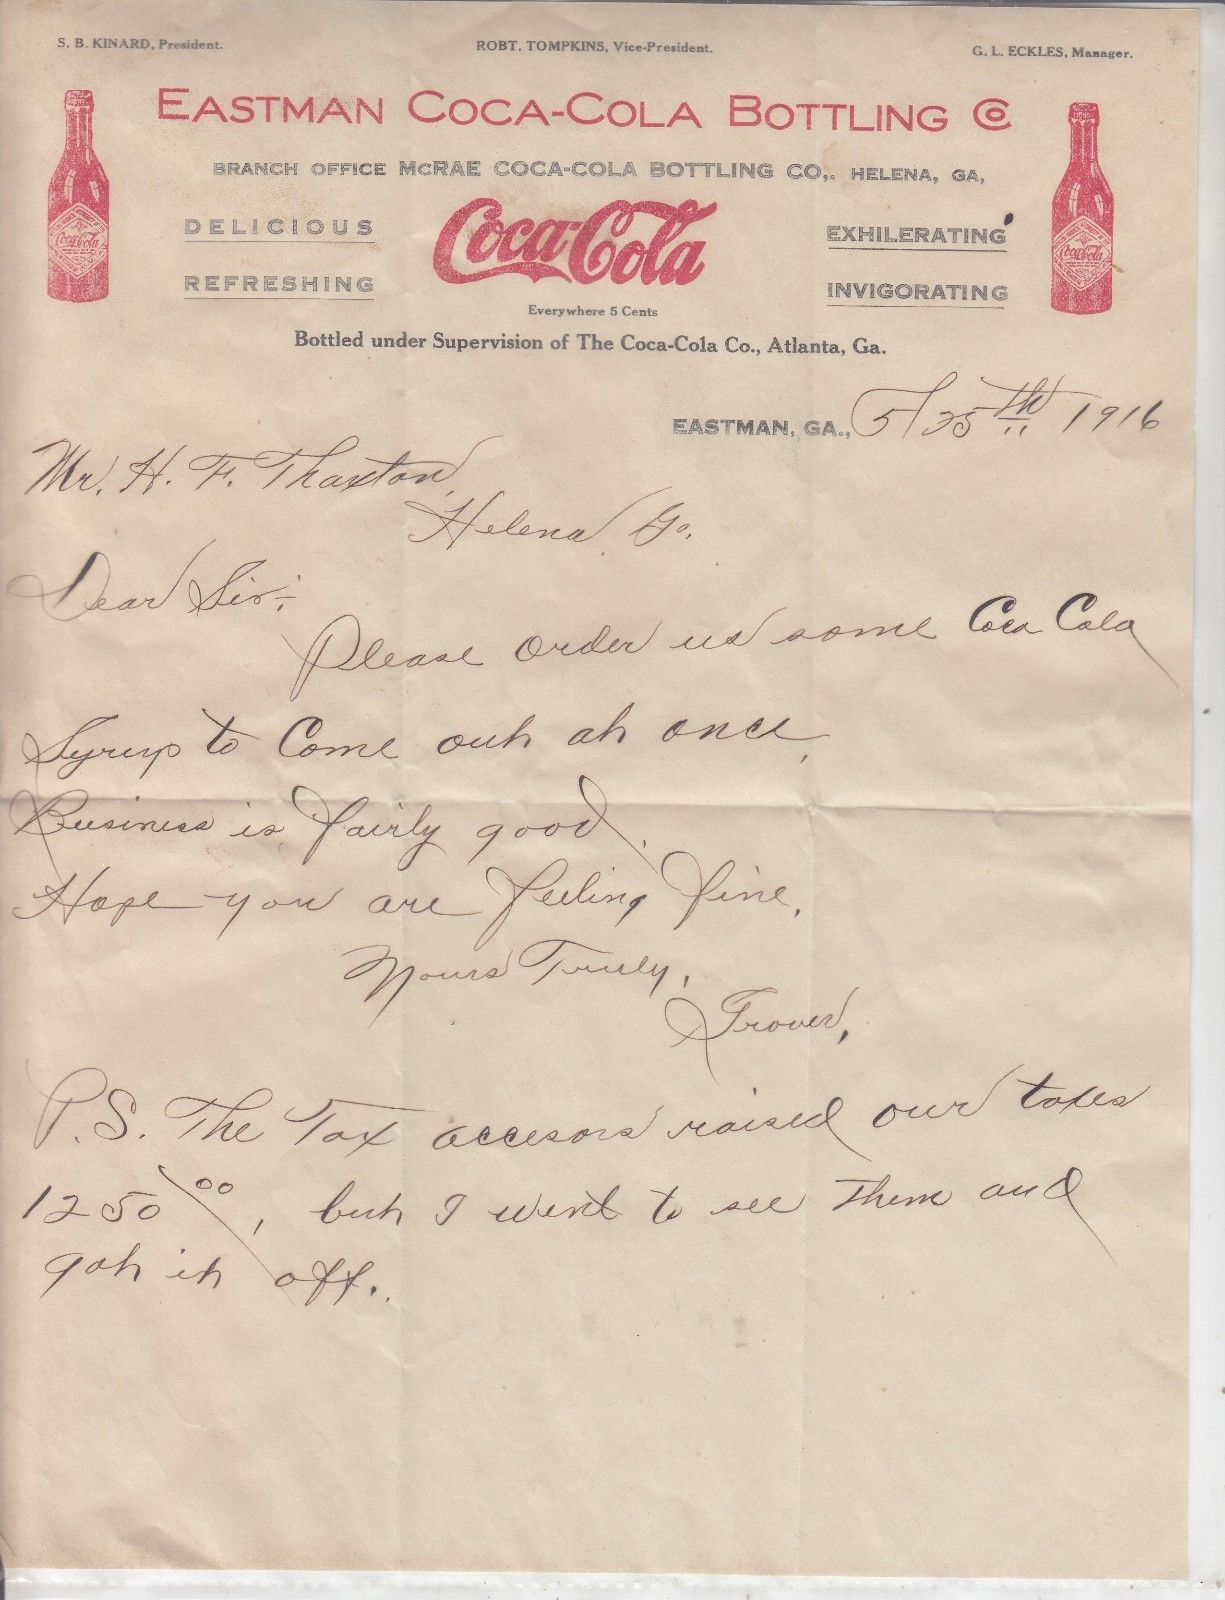 S. B. KINARD, President. ROBT. TOMPKINS, Vice-President. G. L. ECKLES, Manager.
EASTMAN COCA-COLA BOTTLING Co
BRANCH OFFICE McRAE COCA-COLA BOTTLING CO,. HELENA, GA,
DELICIOUS Coca-Cola EXHILERATING
REFRESHING INVIGORATING
Everywhere 5 Cents
Bottled under Supervision of The Coca-Cola Co., Atlanta, Ga.
EASTMAN, GA., 5/25th 1916
Mr. H. F. Thaxton,
Helena, Ga.
Dear Sir:-
Please order us some Coca Cola
Syrup to Come out at once.
Business is fairly good.
Hope you are feeling fine.
Yours Truely,
P.S. The Tax accesors raised our taxes
1250 00, but I went to see them and
got it off.
Coca-Cola
Coca-Cola